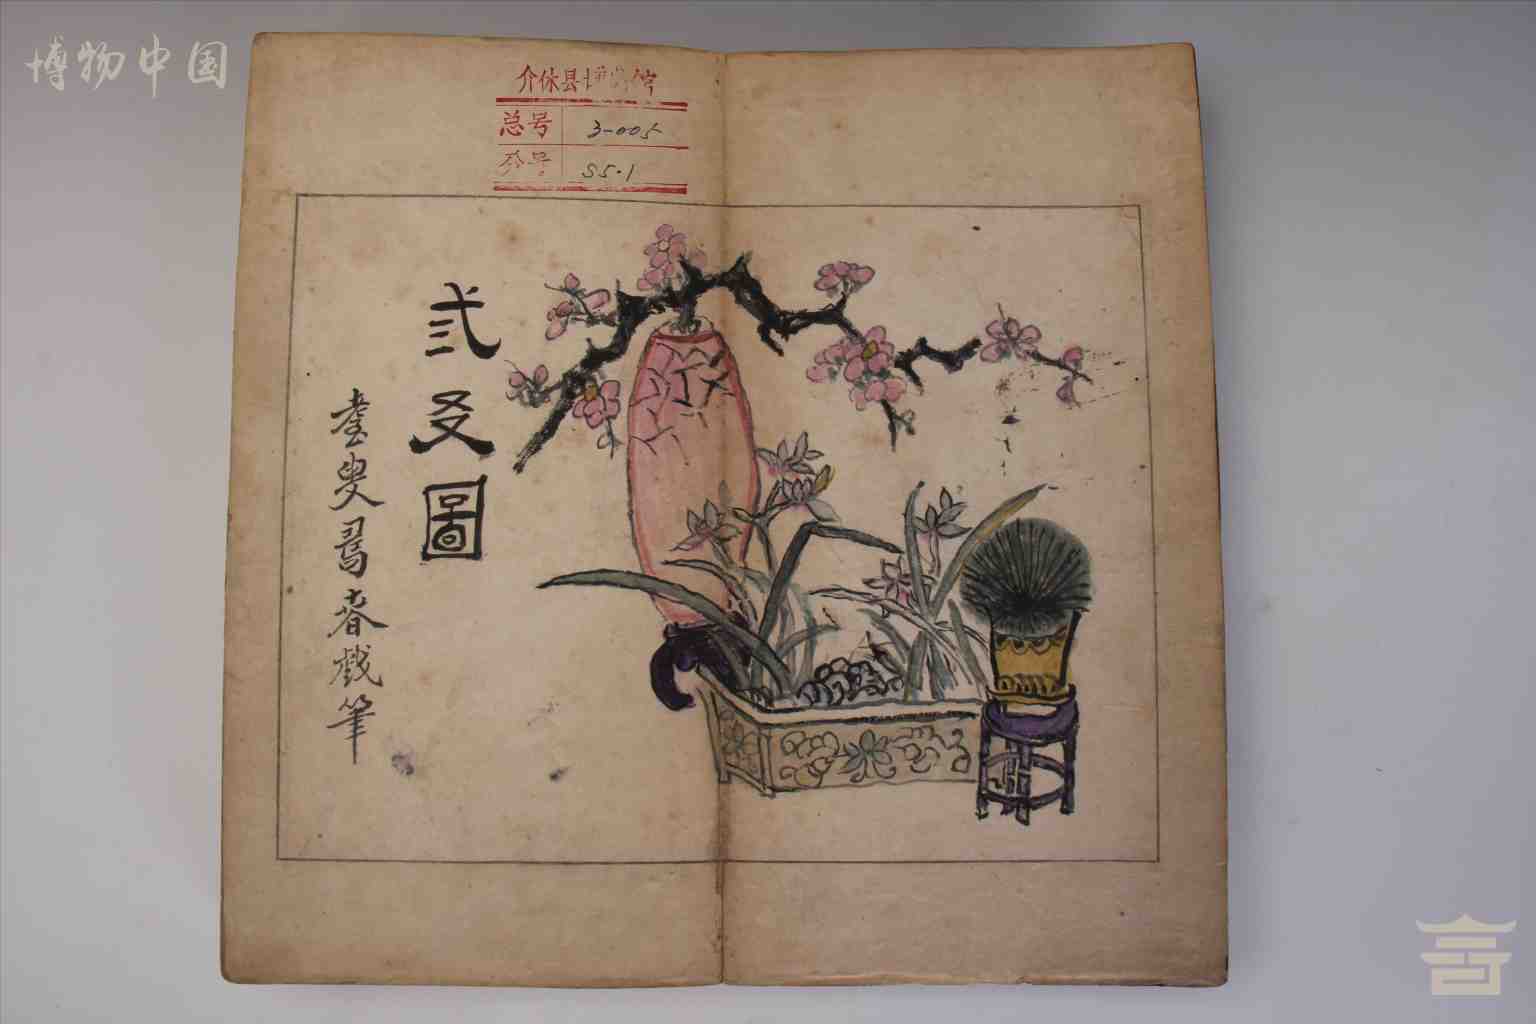 博物中国
介休县博物馆
总号 3-005
分号 S5·1
弍㕛圖
耋叟 春戲筆